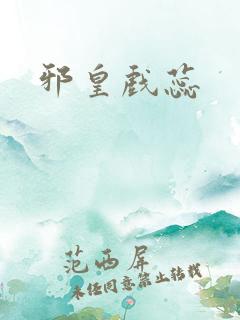 邪皇戏蕊
范西屏
未经同意禁止转载